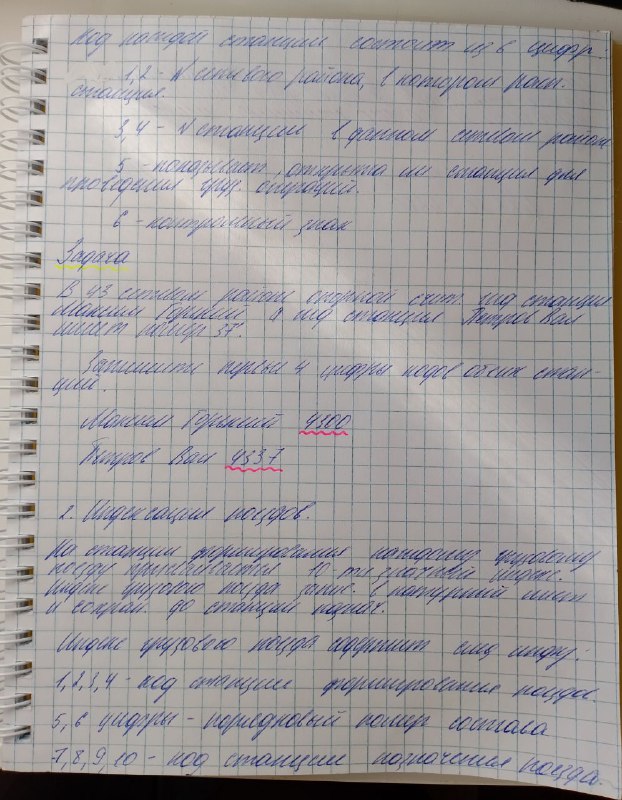 Код каждой станции состоит из 6 цифр.
1,2 - N сетевого района, в котором расп.
станция.
3,4 - N станции в данном сетевом районе
5 - показывает, открыта ли станция для
проведения груз. операций.
6 - контрольный знак
Задача
В 43 сетевом районе опорной счит. код станции
Максим Горький а код станции Петров Вал
имеет номер 37.
Запишите первые 4 цифры кодов обеих стан-
ций.
Максим Горький 4300
Петров Вал 4337
2. Индексация поездов.
На станции формирования каждому грузовому
поезду присваивается 10-тизначный индекс.
Индекс грузового поезда запис. в натурный лист
и сохран. до станции назнач.
Индекс грузового поезда содержит след инфу:
1,2,3,4 - код станции формирования поезда.
5,6 цифры - порядковый номер состава
7,8,9,10 - код станции назначения поезда.